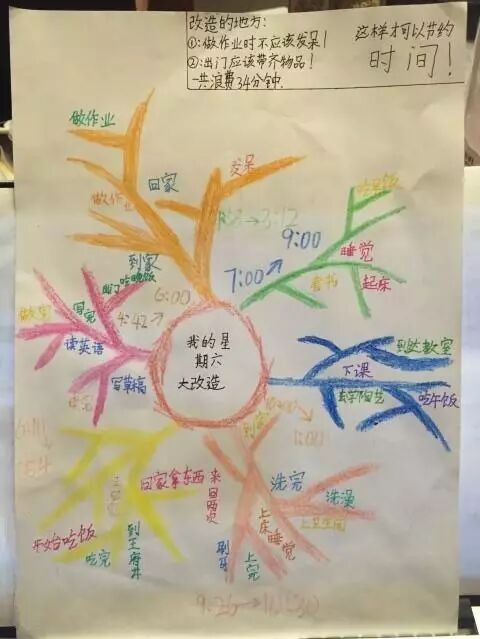 改造的地方:
①:做作业时不应该发呆!
②:出门应该带齐物品!
一共浪费34分钟.
这样才可以节约
时间!
我的星
期六
大改造
做作业
做作业
回家
发呆
→3:12
7:00↗9:00
吃早饭
睡觉
看书
起床
到达教室
下课
去学陶艺
吃午饭
到家
洗完
洗澡
上卫生间
上床睡觉
上完
刷牙
9:26→10:30
回家拿东西
来回两次
到王府井
开始吃饭
吃完
4:42↗6:00
到家
出门吃晚饭
写完
做完
读英语
写草稿